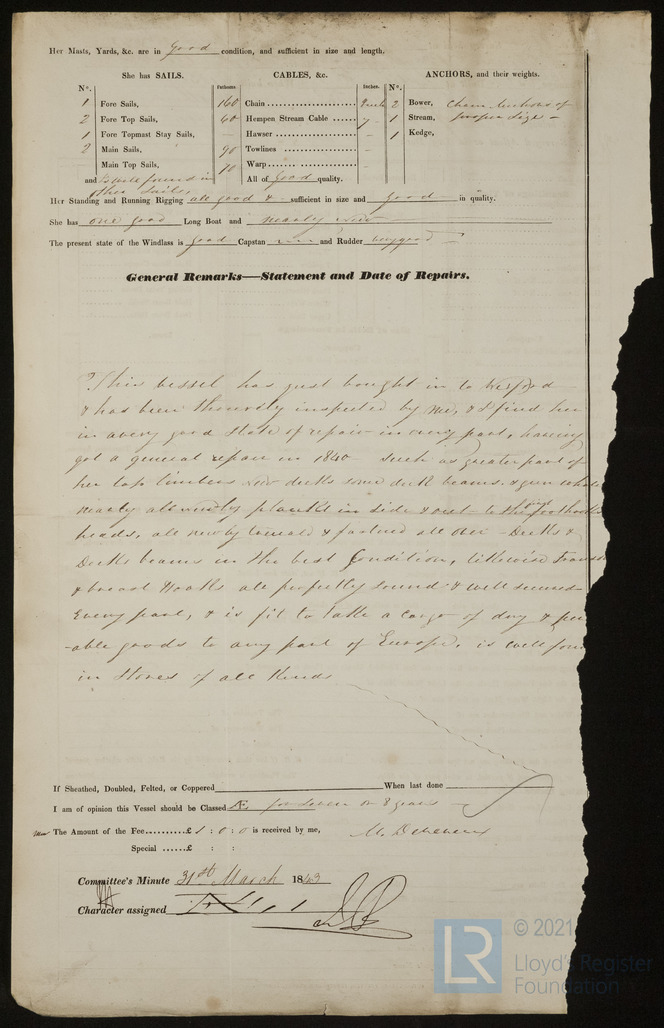 Her Masts, Yards, &c. are in Good condition, and sufficient in size and length.
She has SAILS. CABLES, &c. ANCHORS, and their weights.
N°. Fathoms Inches. N°.
1 Fore Sails, 160 Chain 2 Bower, Chain Anchors of
2 Fore Top Sails, 60 Hempen Stream Cable 7 1 Stream, proper size
1 Fore Topmast Stay Sails, Hawser 1 Kedge,
2 Main Sails, 90 Towlines
Main Top Sails, 70 Warp
and is well found in All of Good quality.
other Sails.
Her Standing and Running Rigging all good & sufficient in size and good in quality.
She has one good Long Boat and nearly new
The present state of the Windlass is good Capstan and Rudder very good
General Remarks—Statement and Date of Repairs.
This vessel has just bought in to Wexford
& has been thoroughly inspected by me, & I find her
in a very good state of repair in every part, having
got a general repair in 1840 such as greater part of
her top timbers new decks some deck beams. &
nearly all newly plankt in side & out to the foothook
heads, all newly & fastned all over - Decks &
Decks beams in the best Condition, likewise
& breast Hooks all perfectly sound & well secured
Every part, & is fit to take a cargo of dry &
-able goods to any part of Europe, is well
in Stores of all Kinds
If Sheathed, Doubled, Felted, or Coppered When last done
I am of opinion this Vessel should be Classed Æ for seven or 8 years
The Amount of the Fee £ 1 : 0 : 0 is received by me,
Special £ : :
Committee's Minute 31st March 1843
Character assigned
© 2021
LR Lloyd's Register
Foundation